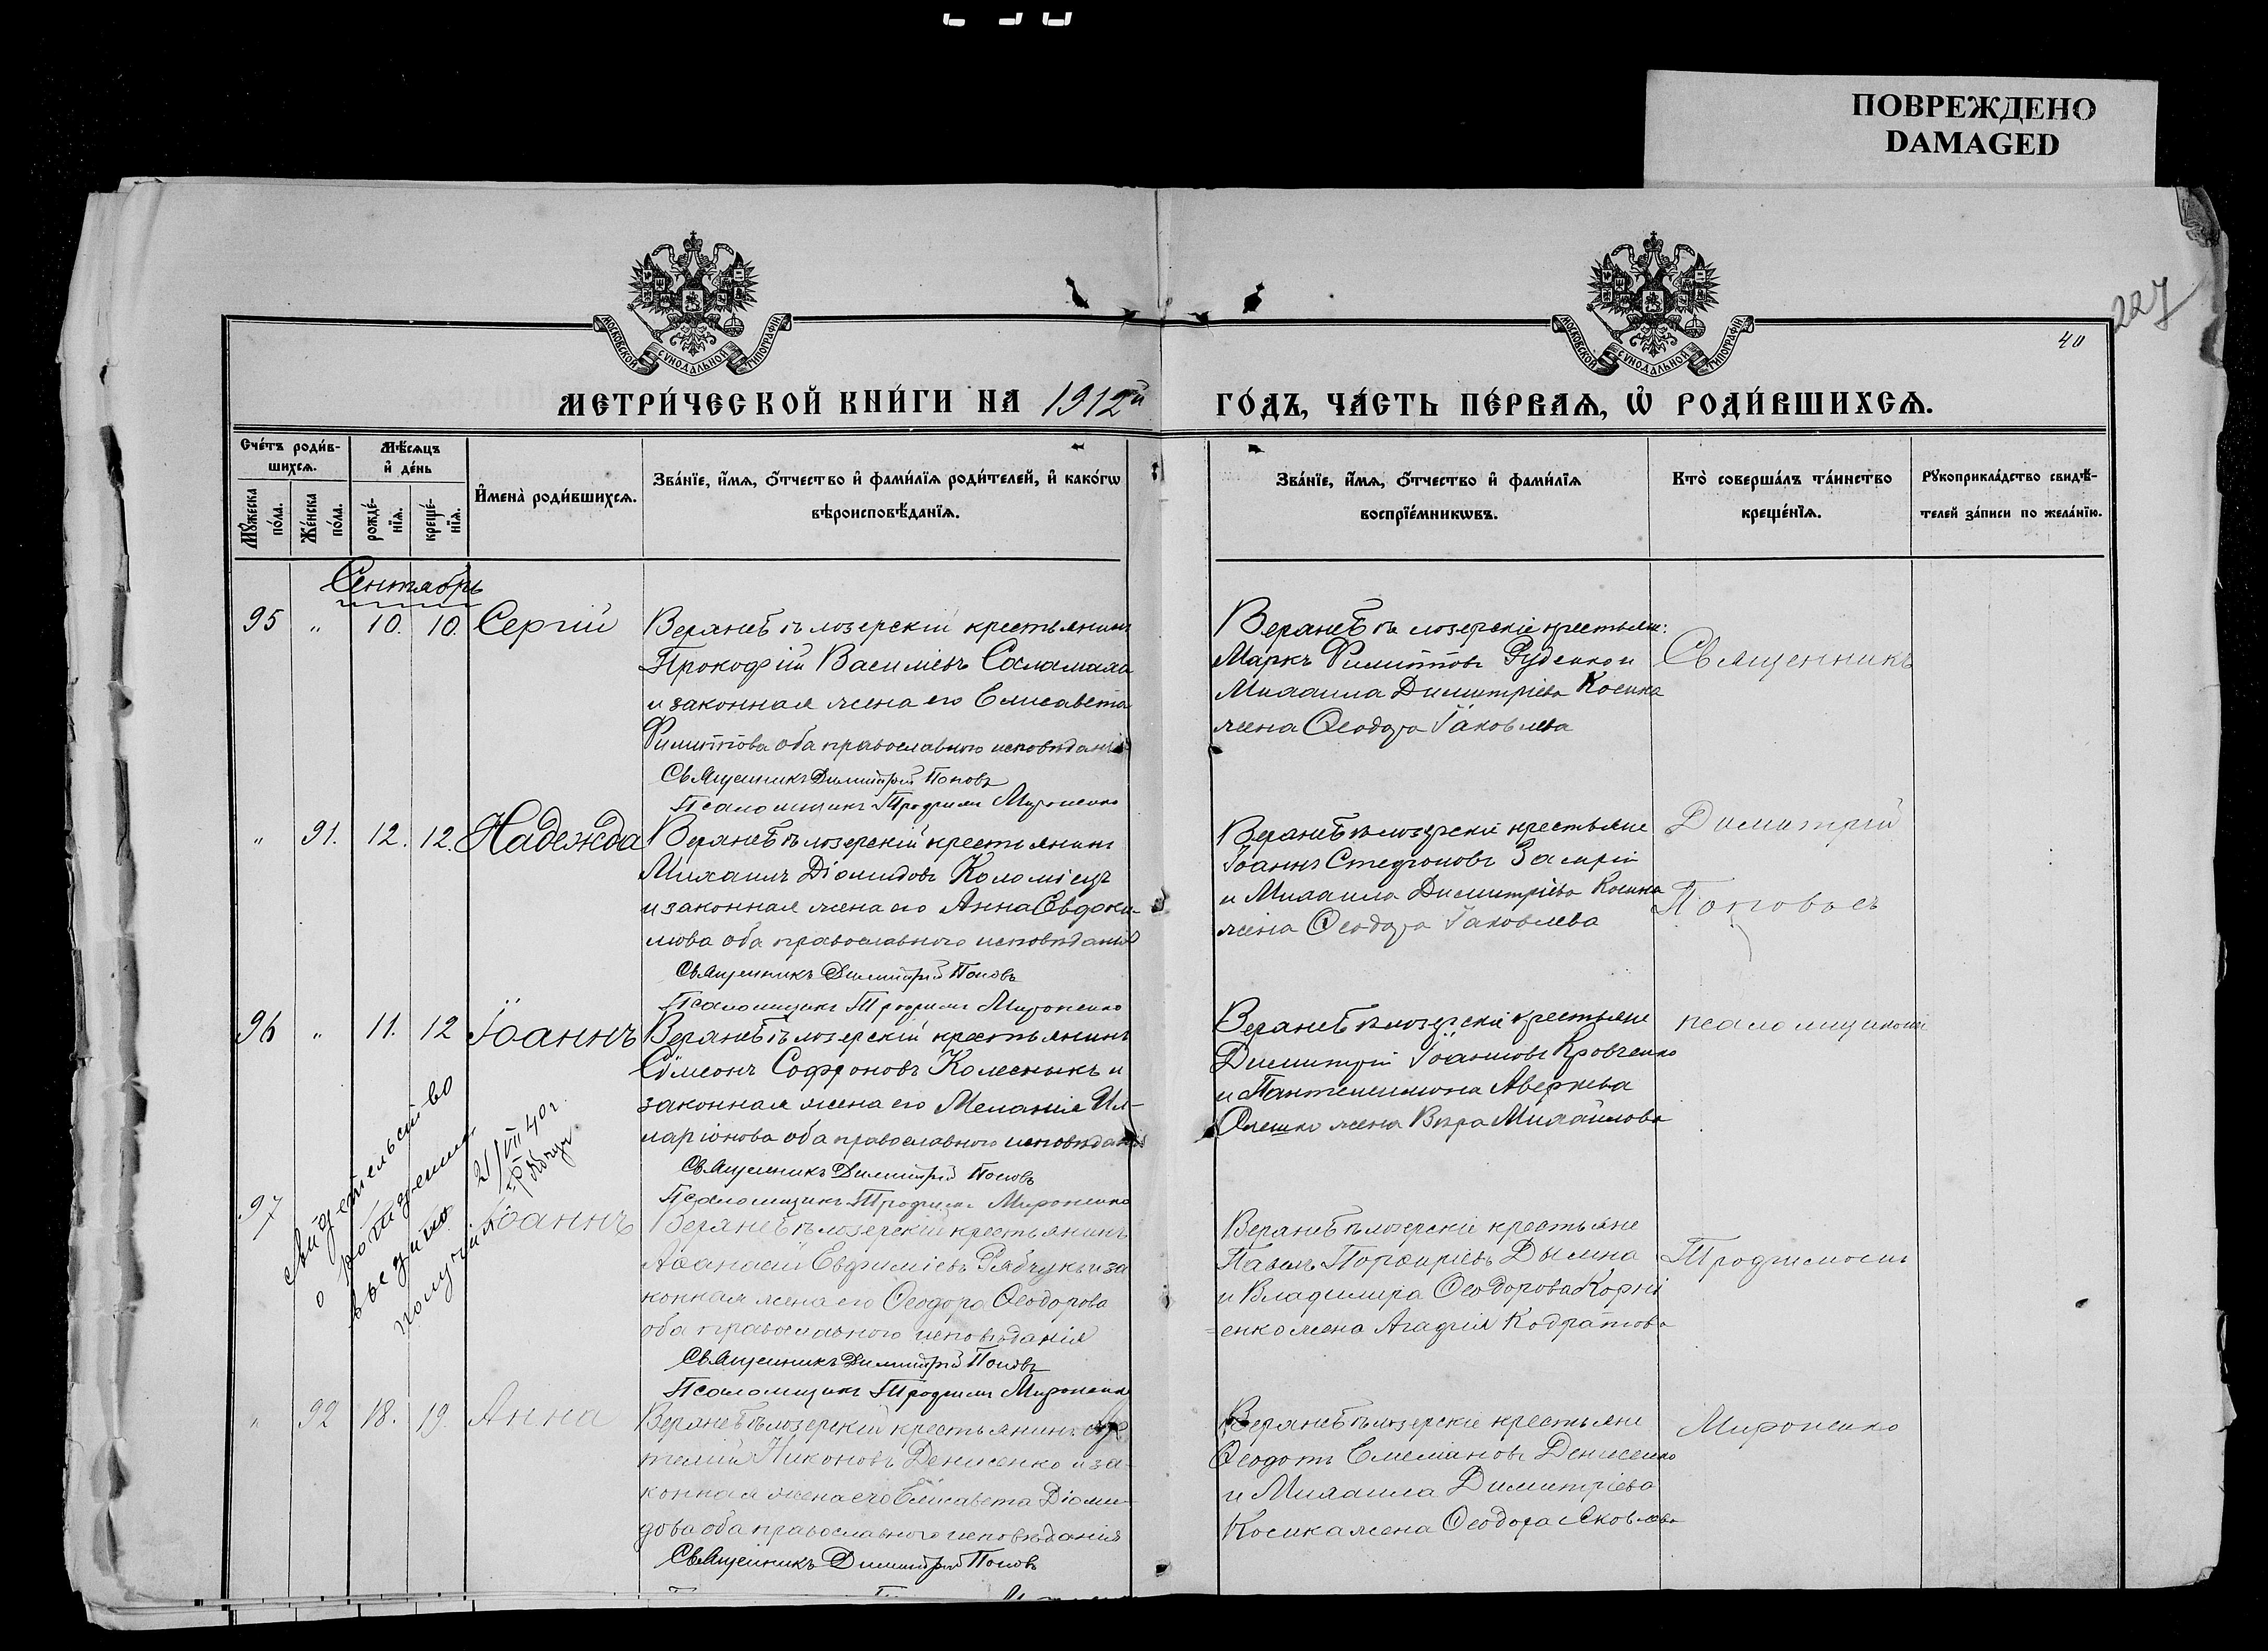 ПОВРЕЖДЕНО
DAMAGED
227
40
МОСКОВСКОЙ СѴНОДАЛЬНОЙ ТИПОГРАФІИ
МОСКОВСКОЙ СѴНОДАЛЬНОЙ ТИПОГРАФІИ
МЕТРИ́ЧЕСКОЙ КНИ́ГИ НА 1912й
ГО́ДЪ, ЧА́СТЬ ПЕ́РВАѦ, Ѡ҆ РОДИ́ВШИХСѦ.
Сче́тъ роди́в-
шихсѧ.
Мꙋ́жеска по́ла.
Же́нска по́ла.
Мѣ́сѧцъ
и҆ де́нь
рожде́-нїѧ.
креще́-нїѧ.
И҆мена̀ роди́вшихсѧ.
Зва́нїе, и҆́мѧ, ѻ҆́тчество и҆ фами́лїѧ роди́телей, и҆ како́гѡ
вѣроисповѣ́данїѧ.
Зва́нїе, и҆́мѧ, ѻ҆́тчество и҆ фами́лїѧ
воспрїе́мникѡвъ.
Кто̀ соверша́лъ та́инство
креще́нїѧ.
Рꙋкоприкла́дство свидѣ́-
телей за́писи по жела́нїю.
Сентябрь
95 " 10. 10. Сергій
Верхнебѣлозерскій крестьянинъ
Прокофій Василіевъ Саламаха
и законная жена его Елисавета
Филиппова оба православнаго исповѣданія
Священникъ Димитрій Поповъ
Псаломщикъ Трофимъ Мироненко
Верхнебѣлозерскіе крестьяне:
Маркъ Филипповъ Руденко и
Михаила Димитріева Косика
жена Ѳеодора Іаковлева
Священникъ
" 91. 12. 12. Надежда
Верхнебѣлозерскій крестьянинъ
Михаилъ Діомидовъ Коломіецъ
и законная жена его Анна Евдоки-
мова оба православнаго исповѣданія
Священникъ Димитрій Поповъ
Псаломщикъ Трофимъ Мироненко
Верхнебѣлозерскіе крестьяне
Іоаннъ Стефановъ
и Михаила Димитріева Косика
жена Ѳеодора Іаковлева
Димитрій
Поповъ съ
96 " 11. 12 Іоаннъ
Верхнебѣлозерскій крестьянинъ
Сѵмеонъ Софроновъ Колесныкъ и
законная жена его Меланія Ил-
ларіонова оба православнаго исповѣданія
Священникъ Димитрій Поповъ
Псаломщикъ Трофимъ Мироненко
Верхнебѣлозерскіе крестьяне
Димитрій Іоанновъ Кравченко
и Пантелеимона Аверкіева
Олешко жена Вѣра Михайлова
псаломщикомъ
97 Іоаннъ
свидетельство
о рождении
получил
21/VII 40 г.
Верхнебѣлозерскій крестьянинъ
Аѳанасій Евфиміевъ Рябчукъ и за
конная жена его Ѳеодора Ѳеодорова
оба православнаго исповѣданія
Священникъ Димитрій Поповъ
Псаломщикъ Трофимъ Мироненко
Верхнебѣлозерскіе крестьяне
Павелъ Порфиріевъ Дымна
и Владимира Ѳеодорова Корні
=енко жена Агафія Кодратова
Трофимомъ
" 92 18. 19. Анна
Верхнебѣлозерскій крестьянинъ Ар
темій Никоновъ Денисенко и за-
конная жена его Елисавета Діоми-
дова оба православнаго исповѣданія
Священникъ Димитрій Поповъ
Верхнебѣлозерскіе крестьяне
Ѳеодотъ Емеліановъ Денисенко
и Михаила Димитріева
Косика жена Ѳеодора Яковлева
Мироненко